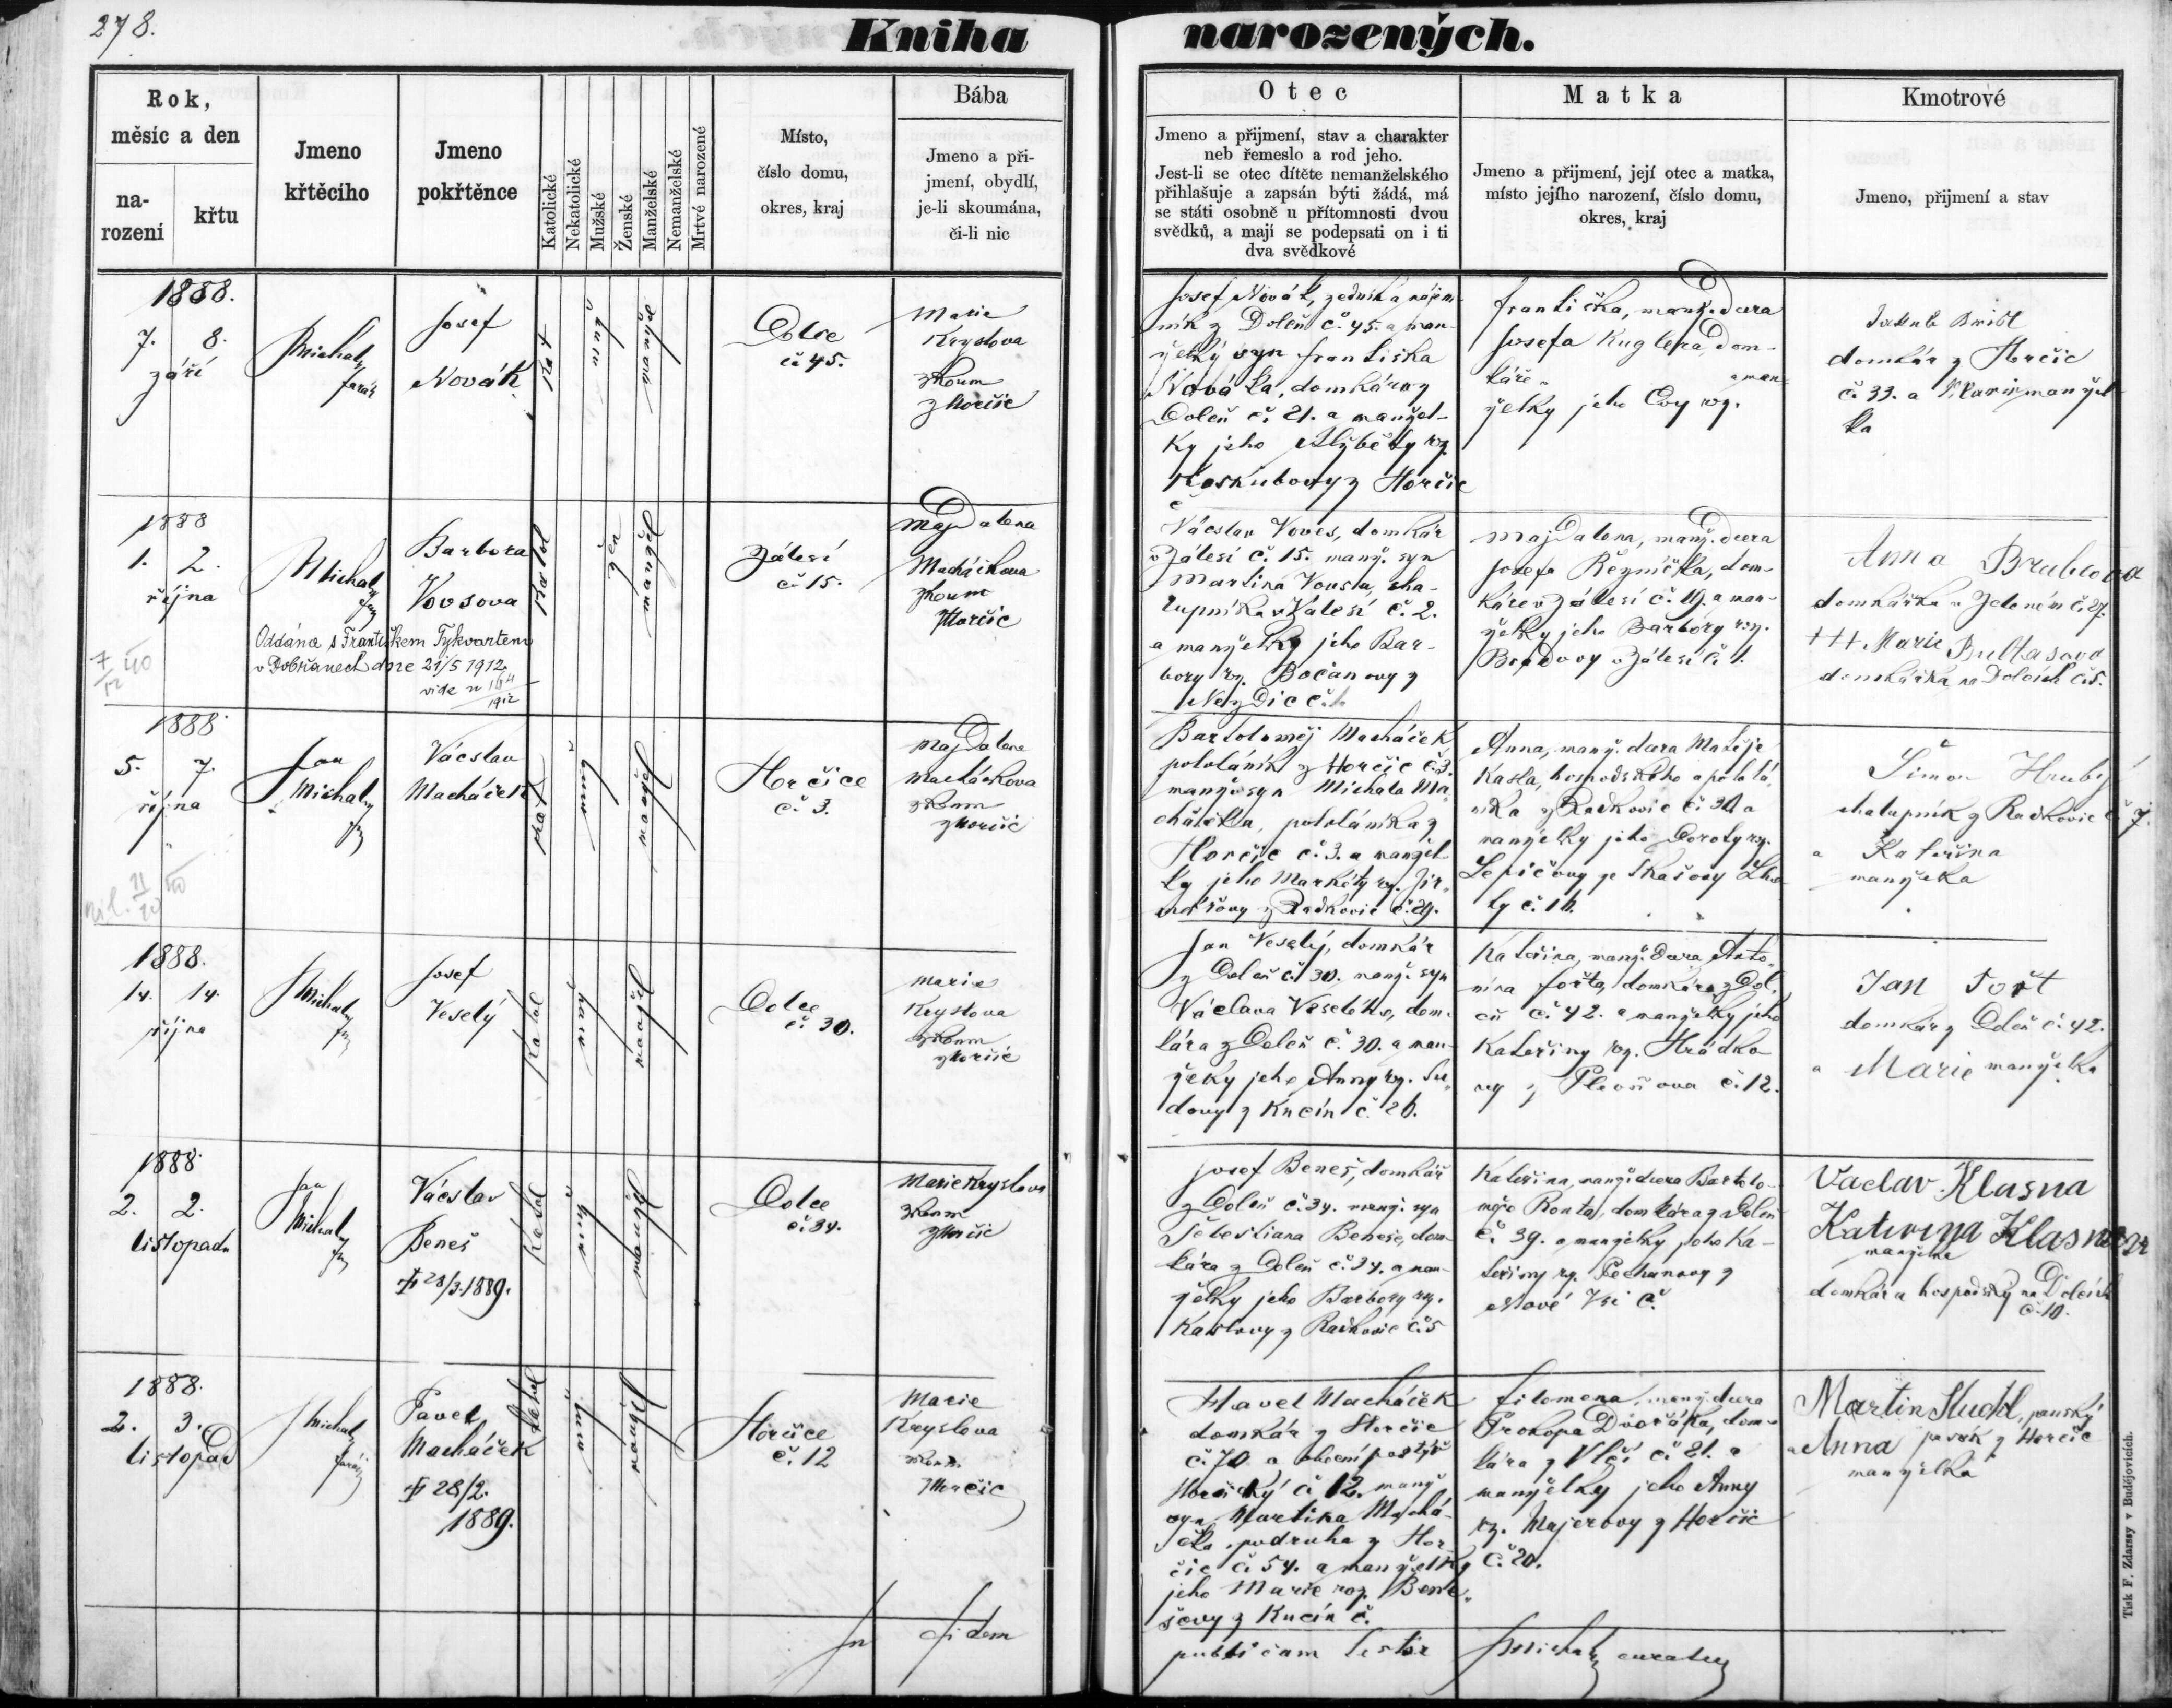 278.
Kniha narozených.
Rok,
měsíc a den
na-
rození
křtu
Jmeno
křtěcího
Jmeno
pokřtěnce
Katolické
Nekatolické
Mužské
Ženské
Manželské
Nemanželské
Mrtvé narozené
Místo,
číslo domu,
okres, kraj
Bába
Jmeno a při-
jmení, obydlí,
je-li skoumána,
či-li nic
Otec
Jmeno a přijmení, stav a charakter
neb řemeslo a rod jeho.
Jest-li se otec dítěte nemanželského
přihlašuje a zapsán býti žádá, má
se státi osobně u přítomnosti dvou
svědků, a mají se podepsati on i ti
dva svědkové
Matka
Jmeno a přijmení, její otec a matka,
místo jejího narození, číslo domu,
okres, kraj
Kmotrové
Jmeno, přijmení a stav
1888.
7. 8.
září
Michal
farář
Josef
Novák
Kat
Dolce
č. 45.
Marie
Kryslova
zkoum
z Horčic
Josef Novák, zedník a nájem-
ník z Dolců č. 45. a man-
želký syn Františka
Nováka, domkáře z
Dolců č. 21. a manžel-
ky jeho Alžběty roz.
z Horčic
Františka, manž. dcera
Josefa Kuglera, dom-
káře a man-
želky jeho Evy roz.
Jakub
domkář z Horčic
č. 33. a Marie manžel-
ka
1888
1. 2.
října
Michal
Barbora
Vovsova
Oddána s Františkem Tykvartem
v Dobřanech dne 21/5 1912.
vide n 104
1912
Katol
žen
manžel
Zálesí
č. 15.
Magdalena
Macháčkova
zkoum
Horčic
Václav Voves, domkář
v Zálesí č. 15. manž. syn
Martina Vovsa, cha-
lupníka v Zálesí č. 2.
a manželky jeho Bar-
bory roz. Bočanovy z
Nezdic č. 1.
Magdalena, manž. dcera
Josefa Řezníčka, dom-
káře v Zálesí č. 19. a man-
želky jeho Barbory roz.
v Zálesí č. 1.
Anna
domkářka v Zeleném č. 27.
+++ Marie Bultasova
domkářka na Dolcích č. 5.
1888
5. 7.
října
Jan
Michal
Václav
Macháček
Katol
manžel
Horčice
č. 3.
Magdalena
Macháčkova
zkoum
z Horčic
Bartoloměj Macháček
pololáník z Horčic č. 3.
manž. syn Michala Ma-
cháčka, pololáníka z
Horčic č. 3. a manžel-
ky jeho Markéty roz. Jir-
z Radkovic č. 29.
Anna, manž. dcera Matěje
Kasla, hospodského a pololá-
níka z Radkovic č. 30. a
manželky jeho Doroty roz.
Lepičovy ze Skašovy Lho-
ty č. 11.
Šimon Hrubý
chalupník z Radkovic č. 7.
a Kateřina
manželka
1888.
14. 14.
října
Michal
Josef
Veselý
Katol
manžel
Dolce
č. 30.
Marie
Kryslova
zkoum
z Horčic
Jan Veselý, domkář
z Dolců č. 30. manž. syn
Václava Veselého, dom-
káře z Dolců č. 30. a man-
želky jeho Anny roz. Su-
dovy z Knčín č. 26.
Kateřina, manž. dcera Anto-
nína Fořta, domkáře z Dol-
ců č. 42. a manželky jeho
Kateřiny roz. Hrádko-
vy z č. 12.
Jan Fořt
domkář z Dolců č. 42.
a Marie manželka
1888.
2. 2.
listopadu
Jan
Michal
Václav
Beneš
† 28/3. 1889.
Katol
manžel
Dolce
č. 34.
Marie Kryslova
zkoum
z Horčic
Josef Beneš, domkář
z Dolců č. 34. manž. syn
Šebestiana Beneše, dom-
káře z Dolců č. 34. a man-
želky jeho Barbory roz.
Kaslovy z Radkovic č. 5
Kateřina, manž. dcera Bartolo-
měje Ronta, domkáře z Dolců
č. 39. a manželky jeho Ka-
teřiny roz. Pechanovy z
Nové Vsi č.
Vaclav Klasna
Kateřina Klasna
manželka
domkář a hospodský na Dolcích
č. 10.
1888.
2. 3.
listopad
Michal
farář
Pavel
Macháček
† 28/2.
1889.
Katol
manžel
Horčice
č. 12
Marie
Kryslova
zkoum.
Horčic
Havel Macháček
domkář z Horčic
č. 70. a obecní pastýř
Horčický č. 12. manž
syn Martina Machá-
čka, podruha z Hor-
čic č. 54. a manželky
jeho Marie roz. Bene-
šovy z Knčín č.
Filomena, manž. dcera
Prokopa Dvořáka, dom-
káře z Vlčí č. 21. a
manželky jeho Anny
roz. Majerovy z Horčic
č. 20.
Martin Kuchl, panský
pasák z Horčic
a Anna
manželka
In fidem
publicam testor Michal
Tisk F. Zdarssy v Budějovicích.